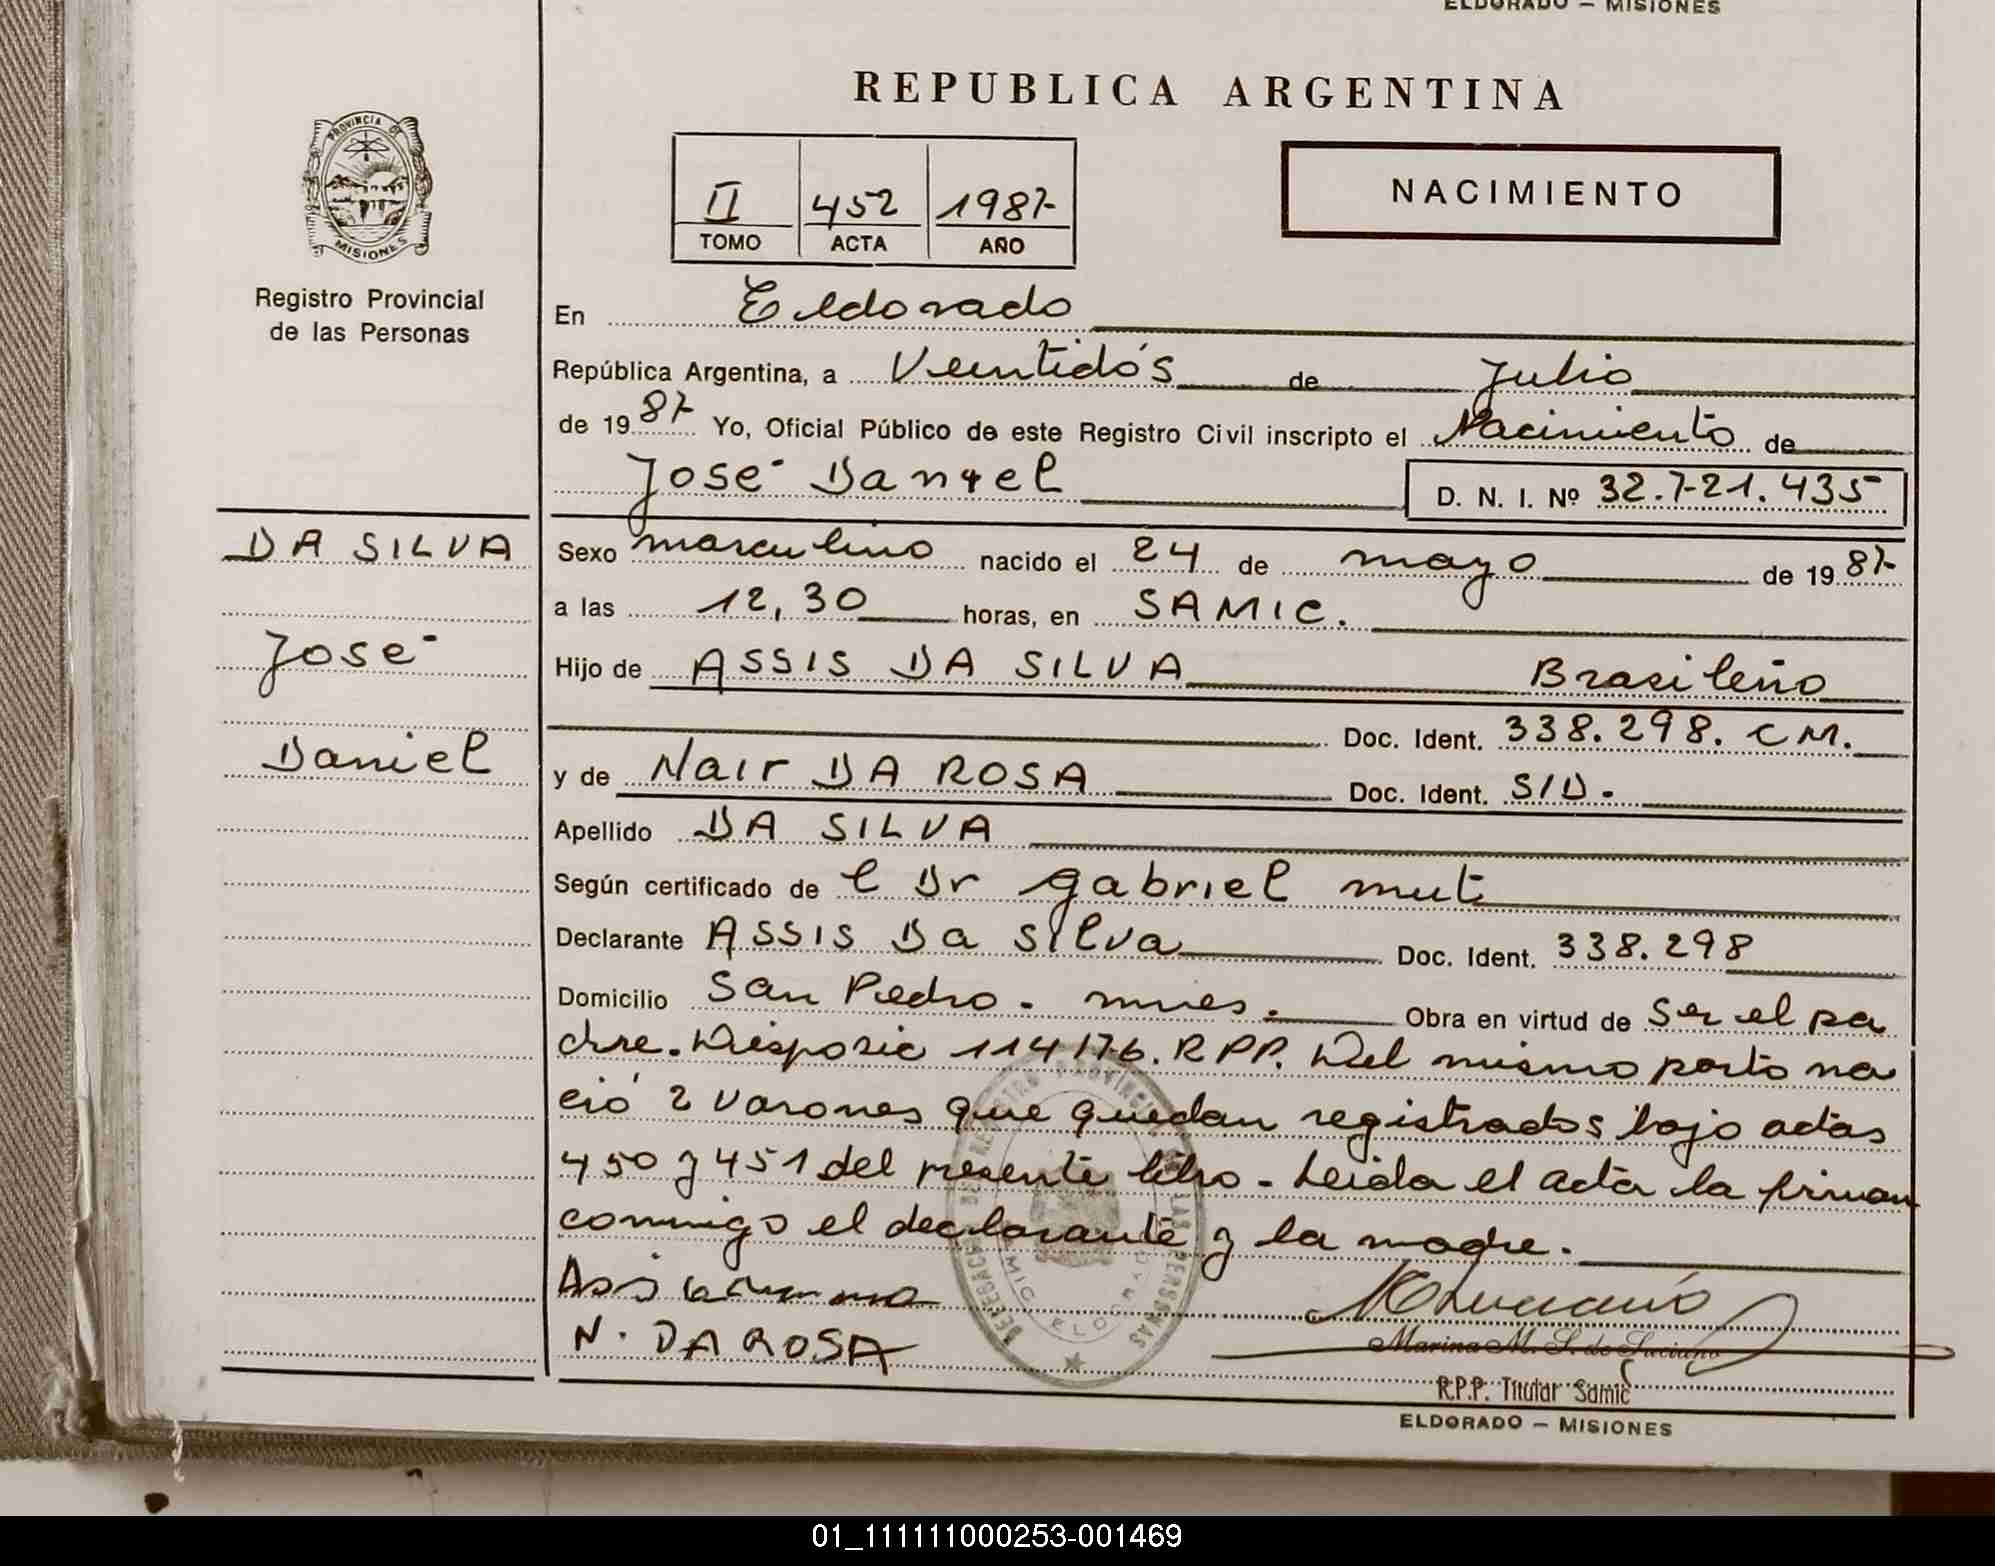 ELDORADO — MISIONES
REPUBLICA ARGENTINA
PROVINCIA DE
MISIONES
Registro Provincial
de las Personas
II 452 1987
TOMO ACTA AÑO
NACIMIENTO
En Eldorado
República Argentina, a Veintidós de Julio
de 1987 Yo, Oficial Público de este Registro Civil inscripto el Nacimiento de
José Daniel D. N. I. Nº 32.721.435
DA SILVA
José
Daniel
Sexo masculino nacido el 24 de mayo de 1987
a las 12,30 horas, en SAMIC.
Hijo de ASSIS DA SILVA Brasileño
Doc. Ident. 338.298. CM.
y de Nair DA ROSA Doc. Ident. S/D.
Apellido DA SILVA
Según certificado de el Dr Gabriel mut
Declarante ASSIS Da Silva Doc. Ident. 338.298
Domicilio San Pedro - mnes. Obra en virtud de Ser el pa
dre. Disposic 114/76. RPP. Del mismo parto na
ció 2 varones que quedan registrados bajo actas
450 y 451 del presente libro - Leída el acta la firman
conmigo el declarante y la madre.
N. DA ROSA
Marina M. S. de Luciano
R.P.P. Titular Samic
ELDORADO — MISIONES
01_111111000253-001469